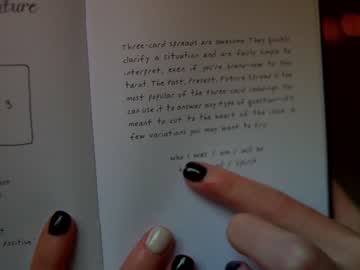 uture
3
Three-card spreads are awesome. They quickly
clarify a situation and are fairly simple to
interpret, even if you're brand-new to the
tarot. The Past, Present, Future Spread is the
most popular of the three-card readings. You
can use it to answer any type of question—it's
meant to cut to the heart of the issue. A
few variations you may want to try:
who I was / am / will be
/ spirit
positive